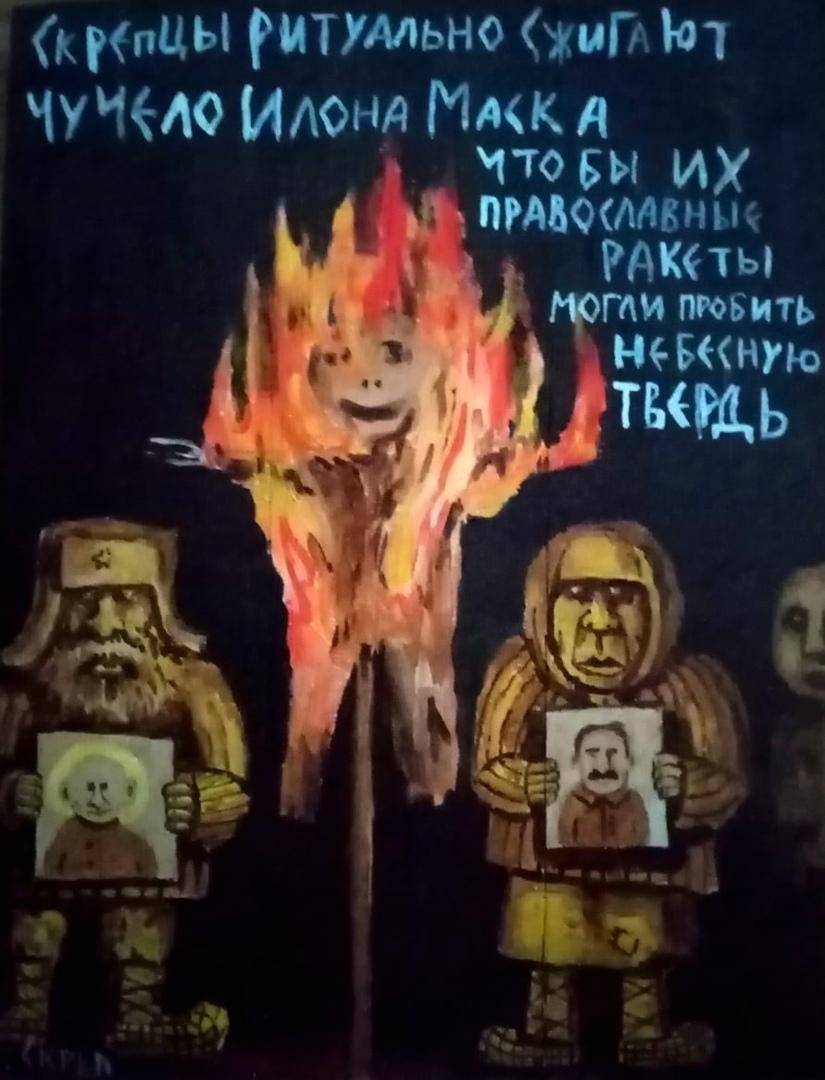 СКРЕПЦЫ РИТУАЛЬНО СЖИГАЮТ
ЧУЧЕЛО ИЛОНА МАСКА
ЧТОБЫ ИХ
ПРАВОСЛАВНЫЕ
РАКЕТЫ
МОГЛИ ПРОБИТЬ
НЕБЕСНУЮ
ТВЕРДЬ